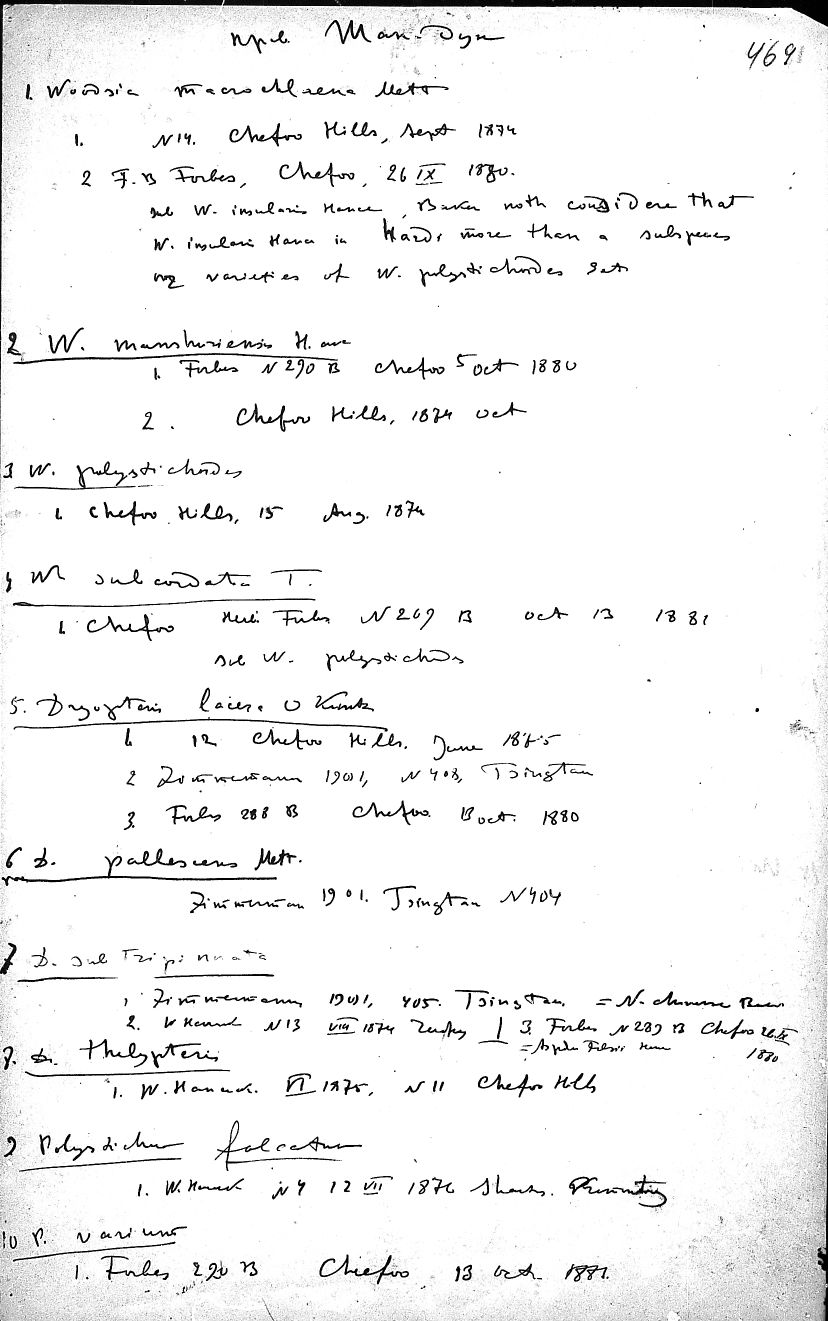 469
1. Woodsia macrochlaena Mett
1. N 14. Chefoo Hills, Sept 1874
2 F. B Forbes, Chefoo, 26 IX 1880.
sub W. insularis Hance, Baker that
W. insularis Hance in more than a subspecies
varieties of W. polystichoides
2 W. manshuriensis H.
1. Forbes N 290 B Chefoo 5 oct 1880
2. Chefoo Hills, 1874 oct
3 W. polystichoides
1. Chefoo Hills, 15 Aug. 1874
4 W subcordata T.
1. Chefoo Forbes N 269 B oct 13 1881
sub W. polystichoides
5. Dryopteris lacera O Kuntz
1. 12 Chefoo Hills. June
2 Zimmermann 1901, N 408, Tsingtau
3. Forbes 288 B Chefoo. 13 oct. 1880
6 D. pallescens Mett.
Zimmerman 1901. Tsingtau N 404
7 D. subtripinnata
1 Zimmermann 1901, 405. Tsingtau. = N.
2. W Hancock N 13 VIII 1874 | 3. Forbes N 289 B Chefoo 26 IX
1880
8. D. Thelypteris
1. W. Hancock. VI 1875, N 11 Chefoo Hills
9 Polystichum falcatum
1. W. Hancock N 4 12 VII 1876
10 P. varium
1. Forbes 290 B Chefoo 13 oct. 1881.